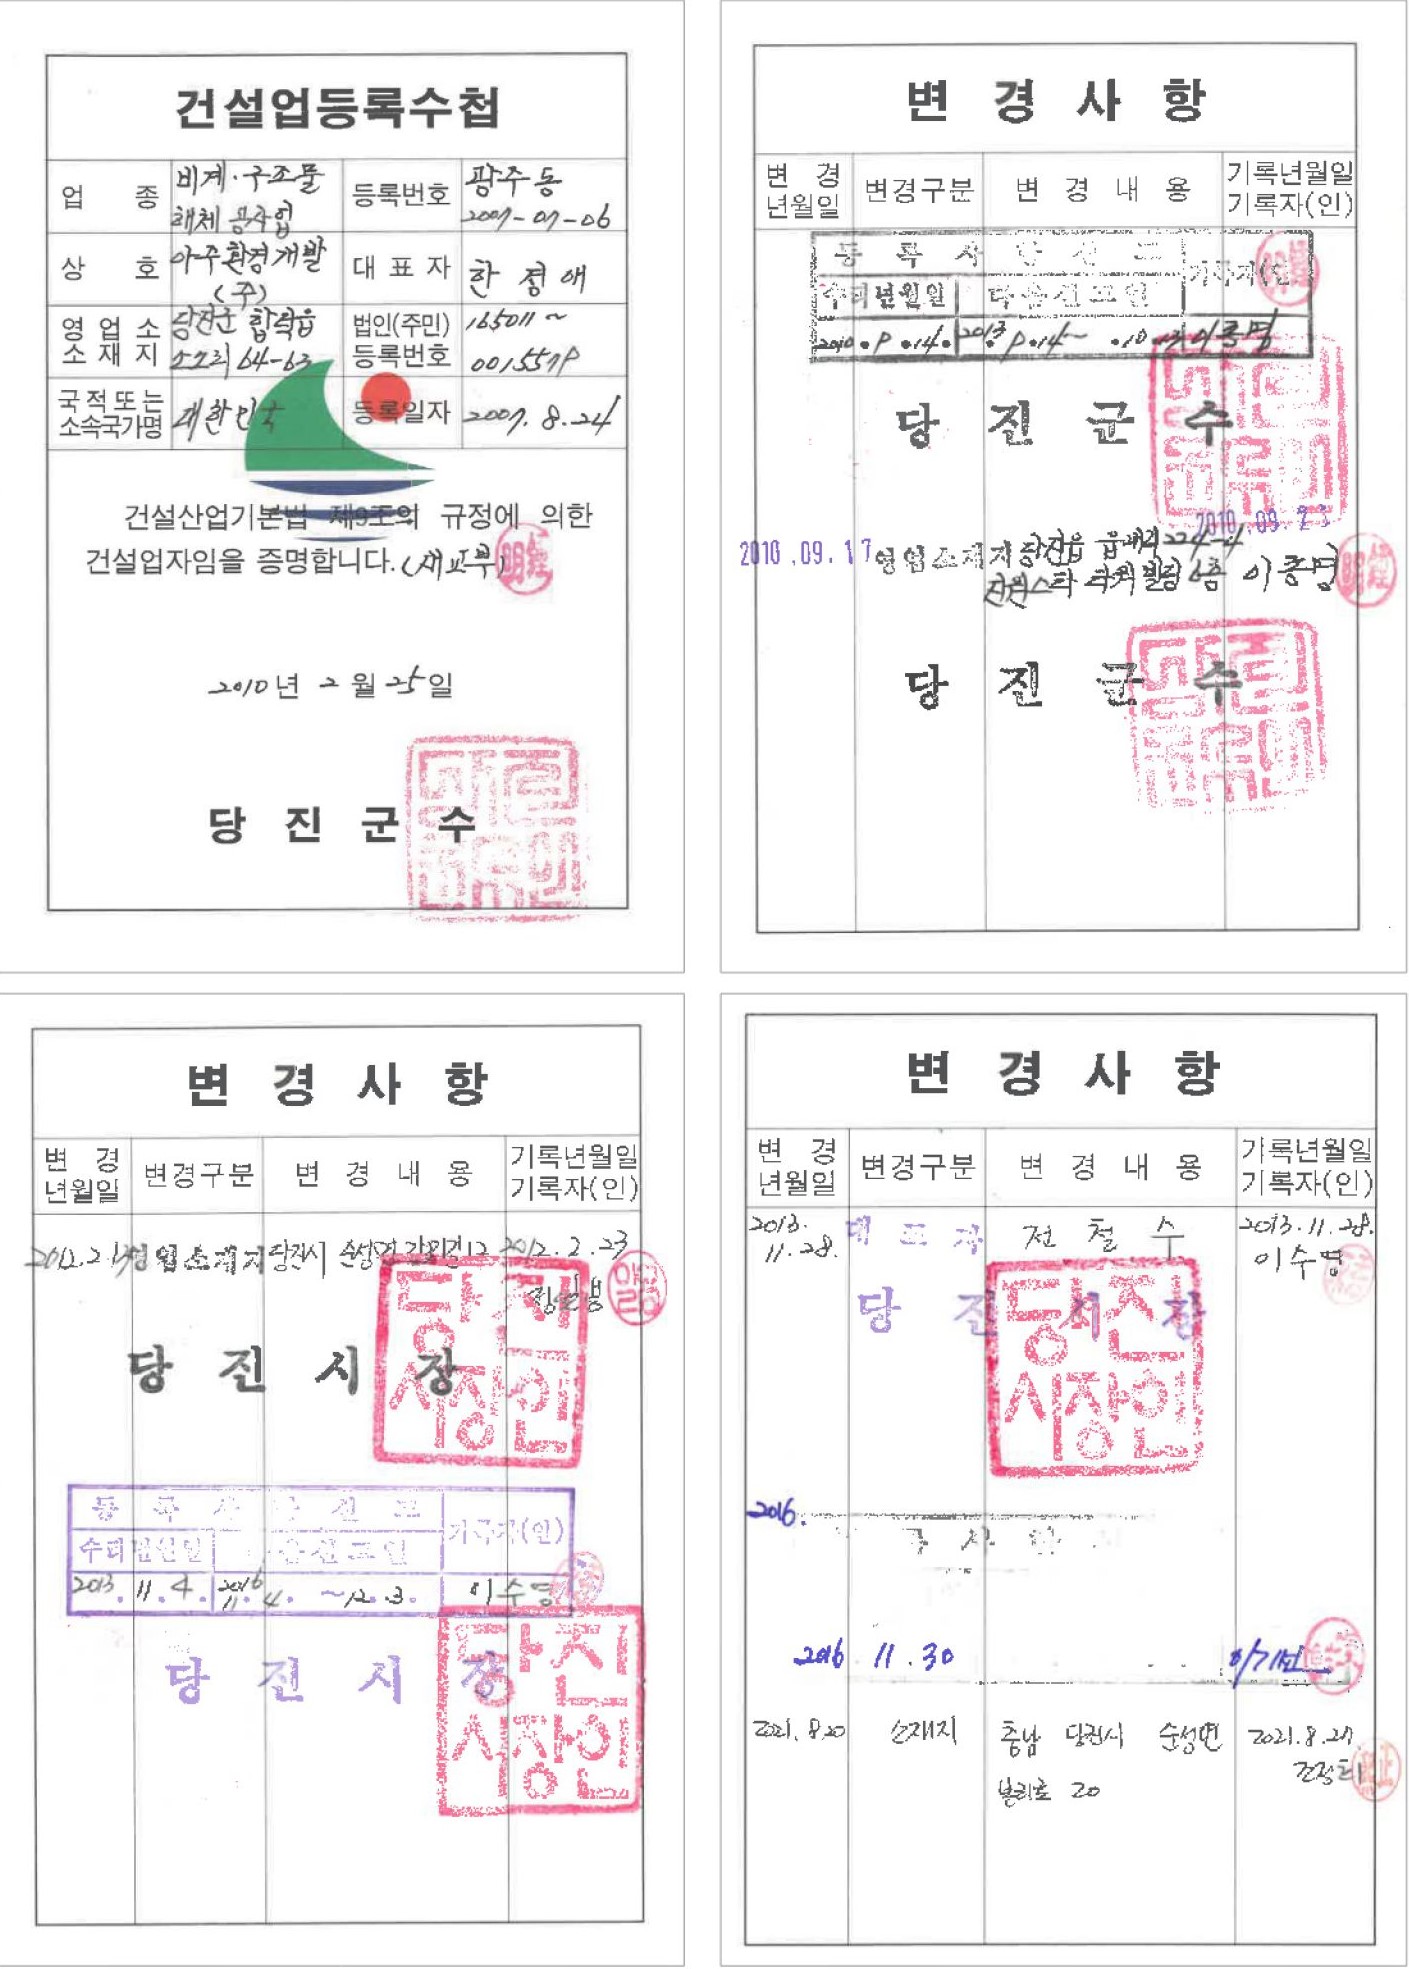 건설업등록수첩
업 종
비계·구조물
해체 공사업
등록번호
광주동
2007-07-06
상 호
아주환경개발
(주)
대 표 자
한 정 애
영 업 소
소 재 지
당진군 합덕읍
소소리 64-63
법인(주민)
등록번호
165011~
국적 또는
소속국가명
대한민국
등록일자
2007. 8. 24
건설산업기본법 제9조의 규정에 의한
건설업자임을 증명합니다. (재교부)
2010년 2월 25일
당 진 군 수
변 경 사 항
변 경
년월일
변경구분
변 경 내 용
기록년월일
기록자(인)
등 록 사 신 고
수리년월일
다음신고일
이종명
당 진 군 수
2010.09.17
영업소재지
당진읍 읍내리
2010.09.2
타워빌딩 6층
이종명
당 진 군 수
변 경 사 항
변 경
년월일
변경구분
변 경 내 용
기록년월일
기록자(인)
2012.2.17
영업소재지
당진시 순성면
2012.2.23
당 진 시 장
당진
시장인
등 록 신 고
수리년월일
기록자(인)
2013. 11. 4.
2016 11. 4. ~ 12. 3.
이수영
당 진 시 장
당진
시장인
변 경 사 항
변 경
년월일
변경구분
변 경 내 용
기록년월일
기록자(인)
2013.
11.28.
대 표 자
전 철 수
2013.11.28.
이수영
당 진 시 장
당진
시장인
2016.
2016 11.30
2021.8.20
소재지
충남 당진시 순성면
본리로 20
2021.8.27.